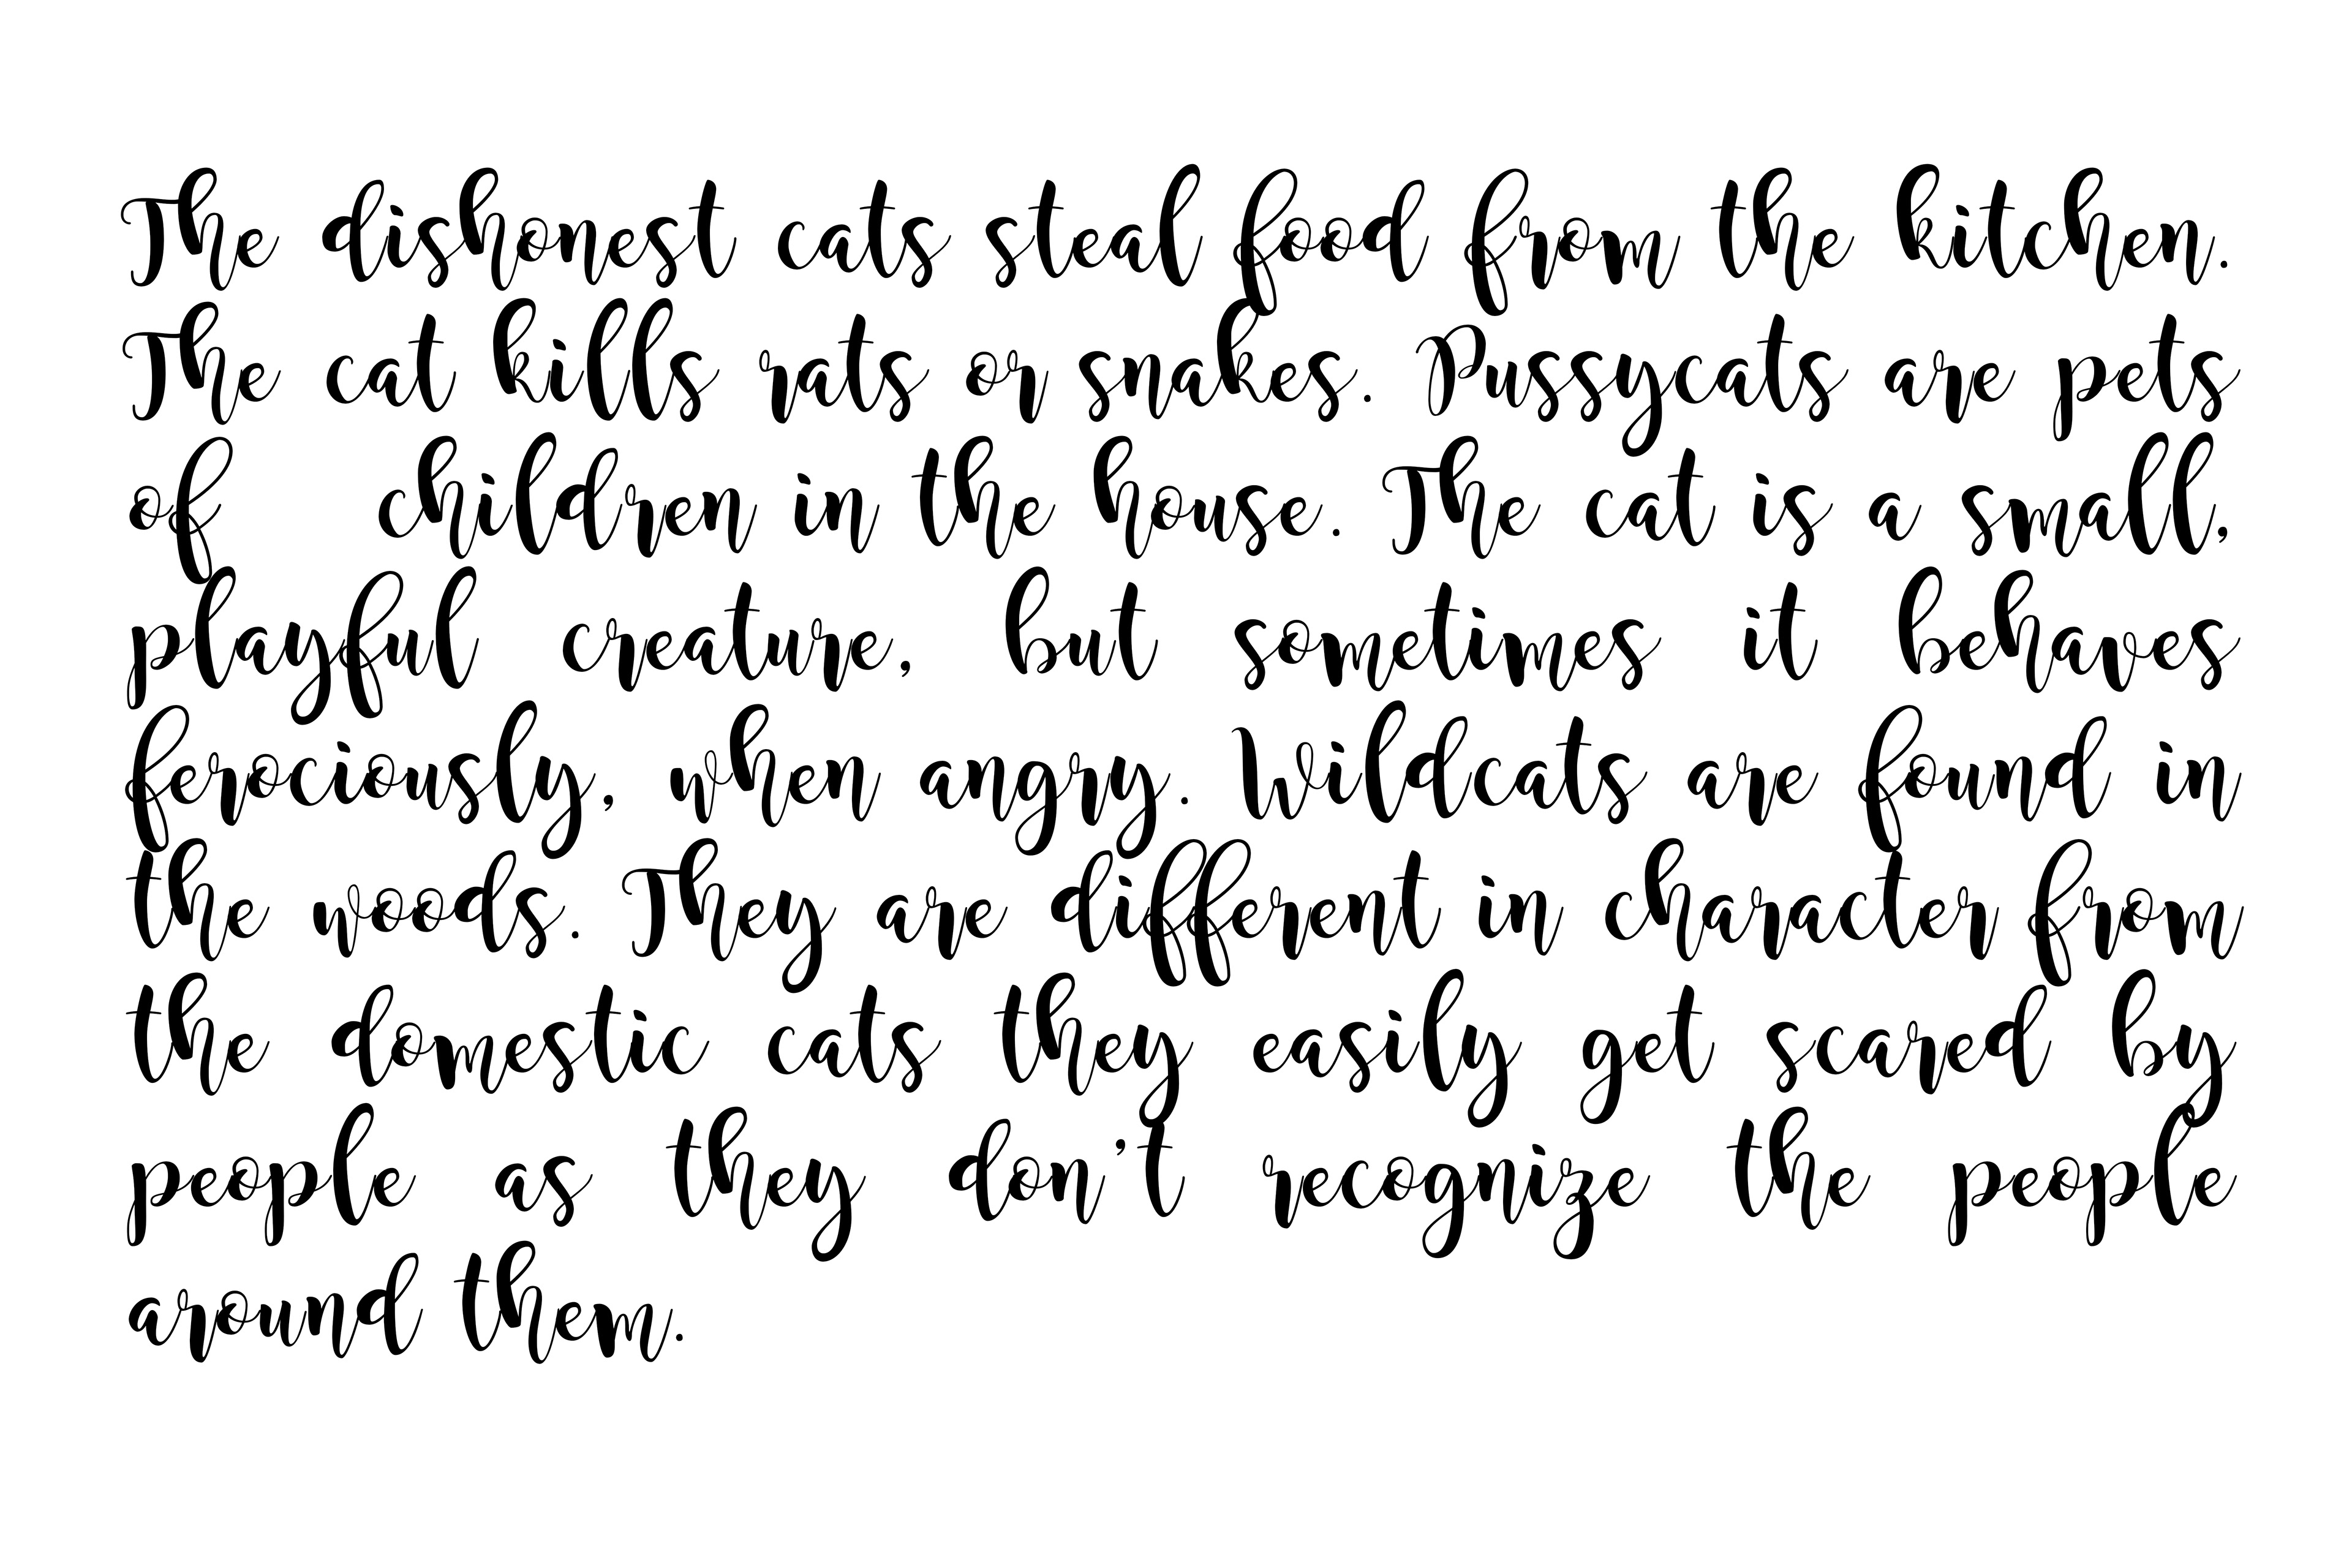 The dishonest cats steal food from the kitchen.
The cat kills rats or snakes. Pussycats are pets
of children in the house. The cat is a small,
playful creature, but sometimes it behaves
ferociously, when angry. Wildcats are found in
the woods. They are different in character from
the domestic cats they easily get scared by
people as they don't recognize the people
around them.